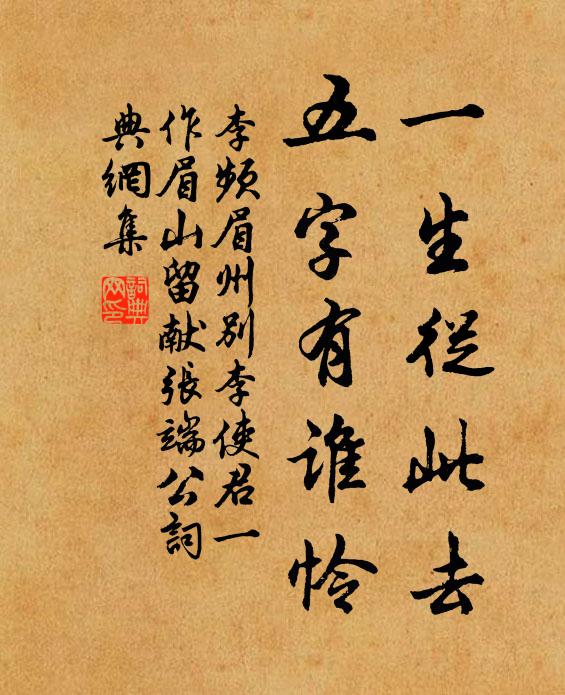 一生從此去
五字有誰怜
李頻眉州別李使君一
作眉山留献張端公詞
典網集
詞典網印